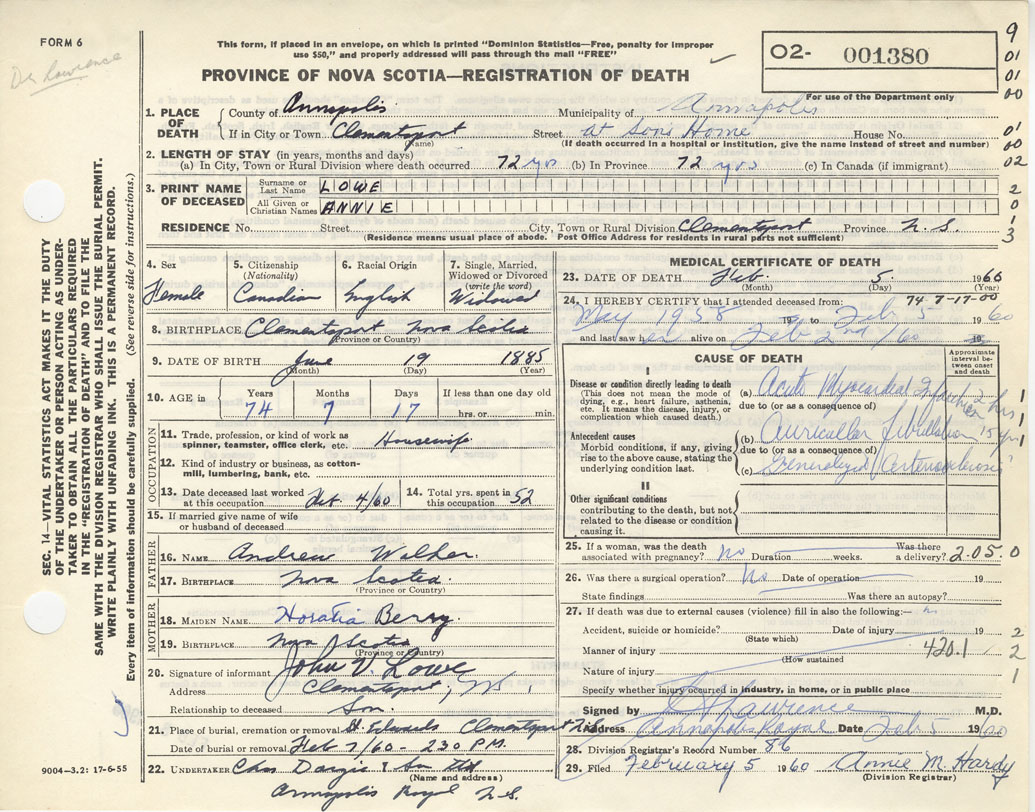 FORM 6
Dr Lawrence
This form, if placed in an envelope, on which is printed "Dominion Statistics—Free, penalty for improper
use $50," and properly addressed will pass through the mail "FREE"
PROVINCE OF NOVA SCOTIA—REGISTRATION OF DEATH
O2- 001380
For use of the Department only
9
01
01
00
01
00
02
2
0
1
3
1. PLACE OF DEATH
County of Annapolis Municipality of Annapolis
If in City or Town Clementsport Street at sons Home House No.
(Name) (If death occurred in a hospital or institution, give the name instead of street and number)
2. LENGTH OF STAY (in years, months and days)
(a) In City, Town or Rural Division where death occurred 72 yrs (b) In Province 72 yrs (c) In Canada (if immigrant)
3. PRINT NAME OF DECEASED
Surname or Last Name LOWE
All Given or Christian Names ANNIE
RESIDENCE No. Street City, Town or Rural Division Clementsport Province N. S.
(Residence means usual place of abode. Post Office Address for residents in rural parts not sufficient)
SEC. 14—VITAL STATISTICS ACT MAKES IT THE DUTY
OF THE UNDERTAKER OR PERSON ACTING AS UNDER-
TAKER TO OBTAIN ALL THE PARTICULARS REQUIRED
IN THE "REGISTRATION OF DEATH" AND FILE THE
SAME WITH THE DIVISION REGISTRAR WHO SHALL ISSUE THE BURIAL PERMIT.
WRITE PLAINLY WITH UNFADING INK. THIS IS A PERMANENT RECORD.
Every item of information should be carefully supplied. (See reverse side for instructions.)
4. Sex
Female
5. Citizenship
(Nationality)
Canadian
6. Racial Origin
English
7. Single, Married,
Widowed or Divorced
(write the word)
Widowed
8. BIRTHPLACE Clementsport Nova Scotia
(Province or Country)
9. DATE OF BIRTH June 19 1885
(Month) (Day) (Year)
10. AGE in
Years Months Days If less than one day old
74 7 17 hrs. or min.
OCCUPATION
11. Trade, profession, or kind of work as
spinner, teamster, office clerk, etc. Housewife
12. Kind of industry or business, as cotton-
mill, lumbering, bank, etc.
13. Date deceased last worked
at this occupation Feb 4/60
14. Total yrs. spent in
this occupation 52
15. If married give name of wife
or husband of deceased
FATHER
16. NAME Andrew
17. BIRTHPLACE Nova Scotia
(Province or Country)
MOTHER
18. MAIDEN NAME Horatia Berry
19. BIRTHPLACE Nova Scotia
(Province or Country)
20. Signature of informant John V. Lowe
Address Clementsport, NS
Relationship to deceased Son.
21. Place of burial, cremation or removal St. Edwards Clementsport N.S.
Date of burial or removal Feb 7/60 - 230 P.M.
22. UNDERTAKER Chas Dargie & Son Ltd
(Name and address)
Annapolis Royal N.S.
9004—3.2: 17-6-55
MEDICAL CERTIFICATE OF DEATH
23. DATE OF DEATH Feb. 5 1960
(Month) (Day)
74 7-17-00
24. I HEREBY CERTIFY that I attended deceased from:
May 1958 19 to Feb 5 1960
and last saw her alive on Feb 2nd /60 19
CAUSE OF DEATH
Approximate
interval be-
tween onset
and death
I
Disease or condition directly leading to death
(This does not mean the mode of
dying, e.g., heart failure, asthenia,
etc. It means the disease, injury, or
complication which caused death.)
(a) Acute Myocardial Infarction 2 hrs
due to (or as a consequence of)
Antecedent causes
Morbid conditions, if any, giving
rise to the above cause, stating the
underlying condition last.
(b) Auricular fibrillation 15 yrs
due to (or as a consequence of)
(c) Generalized Arteriosclerosis
1
1
1
II
Other significant conditions
contributing to the death, but not
related to the disease or condition
causing it.
25. If a woman, was the death
associated with pregnancy? No Duration weeks. Was there
a delivery? 2.05.0
26. Was there a surgical operation? No Date of operation 19
State findings Was there an autopsy?
27. If death was due to external causes (violence) fill in also the following:— no
Accident, suicide or homicide? Date of injury 19 2
(State which)
Manner of injury 420.1 2
(How sustained
Nature of injury 1
Specify whether injury occurred in industry, in home, or in public place
Signed by Lawrence M.D.
Address Annapolis Royal Date Feb 5 19/60
28. Division Registrar's Record Number 86
29. Filed February 5 1960 Annie M. Hardy
(Division Registrar)